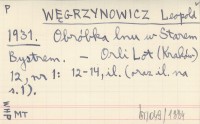 P
WĘGRZYNOWICZ Leopold
1931. Obróbka lnu w Starem
Bystrem. — Orli Lot (Kraków)
12, nr 1: 12-14, il. (oraz il. na
s. 1).
WHP
MT
/1994